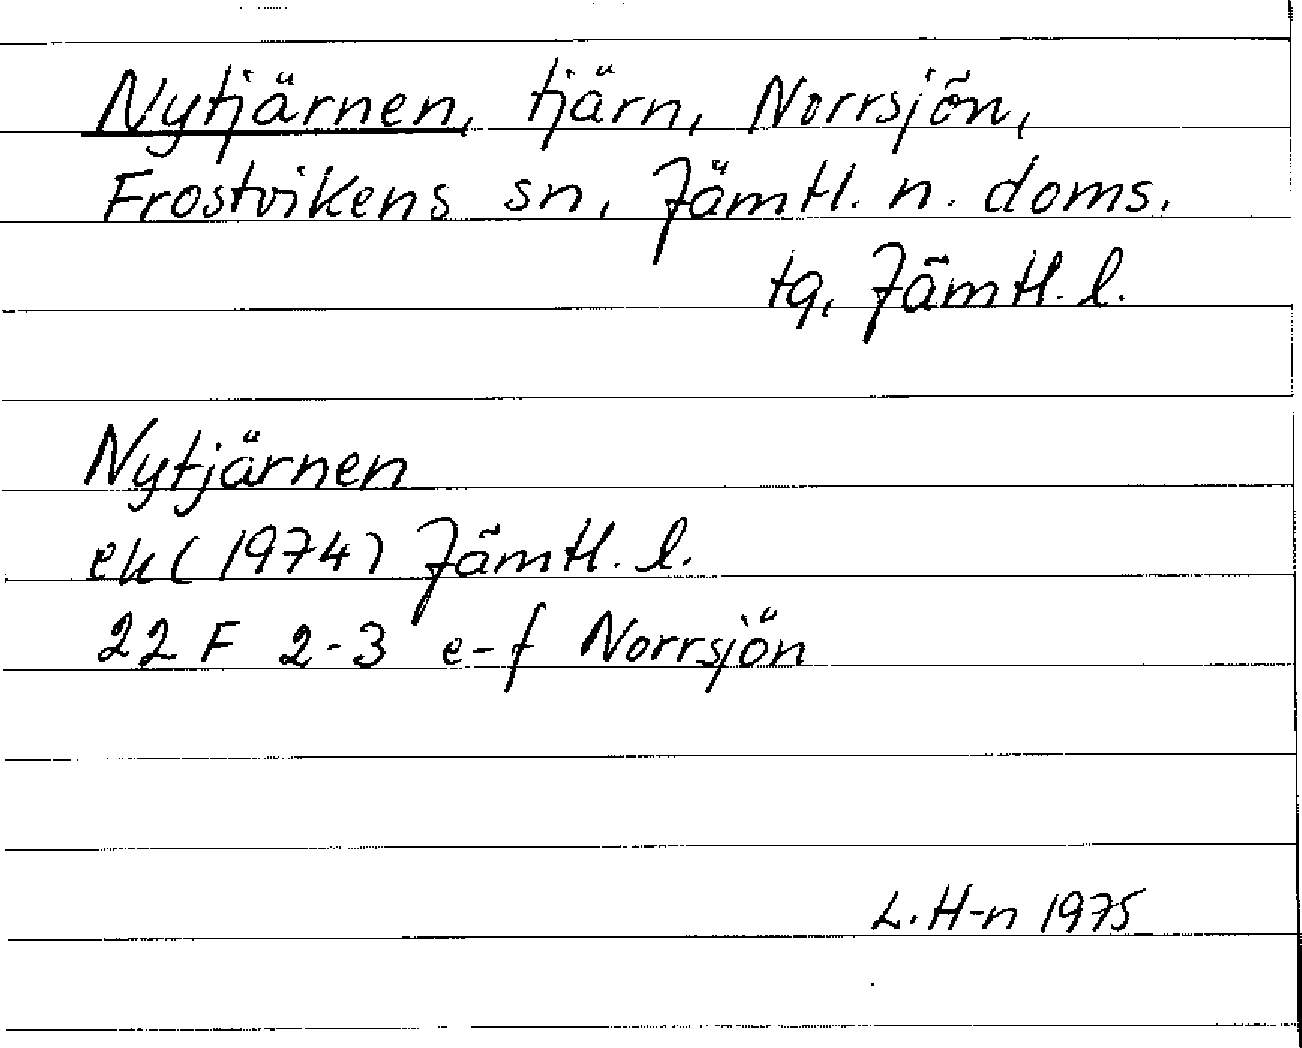 Nytjärnen, tjärn, Norrsjön,
Frostvikens sn, Jämtl. n. doms.
tg, Jämtl. l.
Nytjärnen
ek (1974) Jämtl. l.
22 F 2-3 e-f Norrsjön
L. H-n 1975